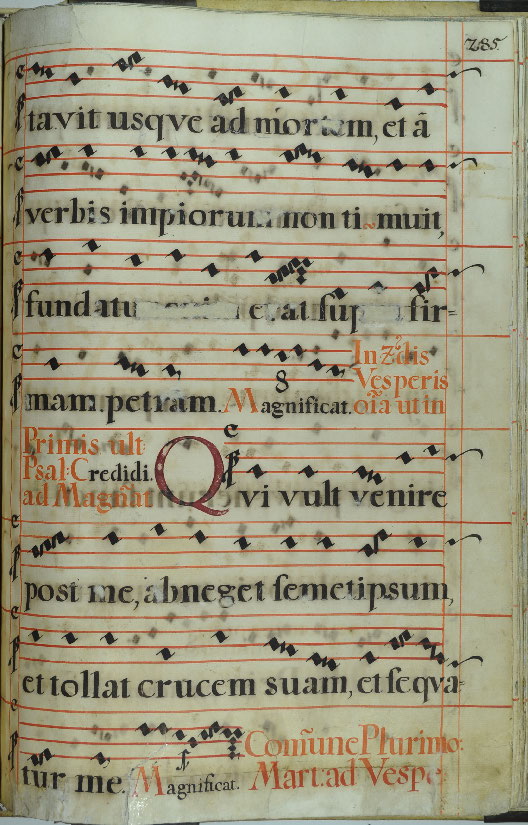 285.
tavit usqve ad mortem, et ā
verbis impiorum non ti~muit,
fundatu erat sup fir=
mam petram. Magnificat. 8
In 2.dis
Vesperis
oīa ut in
Primis ult.
Psal: Credidi.
ad Magnificat
Qvi vult venire
post me, abneget semetipsum,
et tollat crucem suam, et seqva
tur me. Magnificat.
Com̄une Plurimo:
Mart: ad Vespe